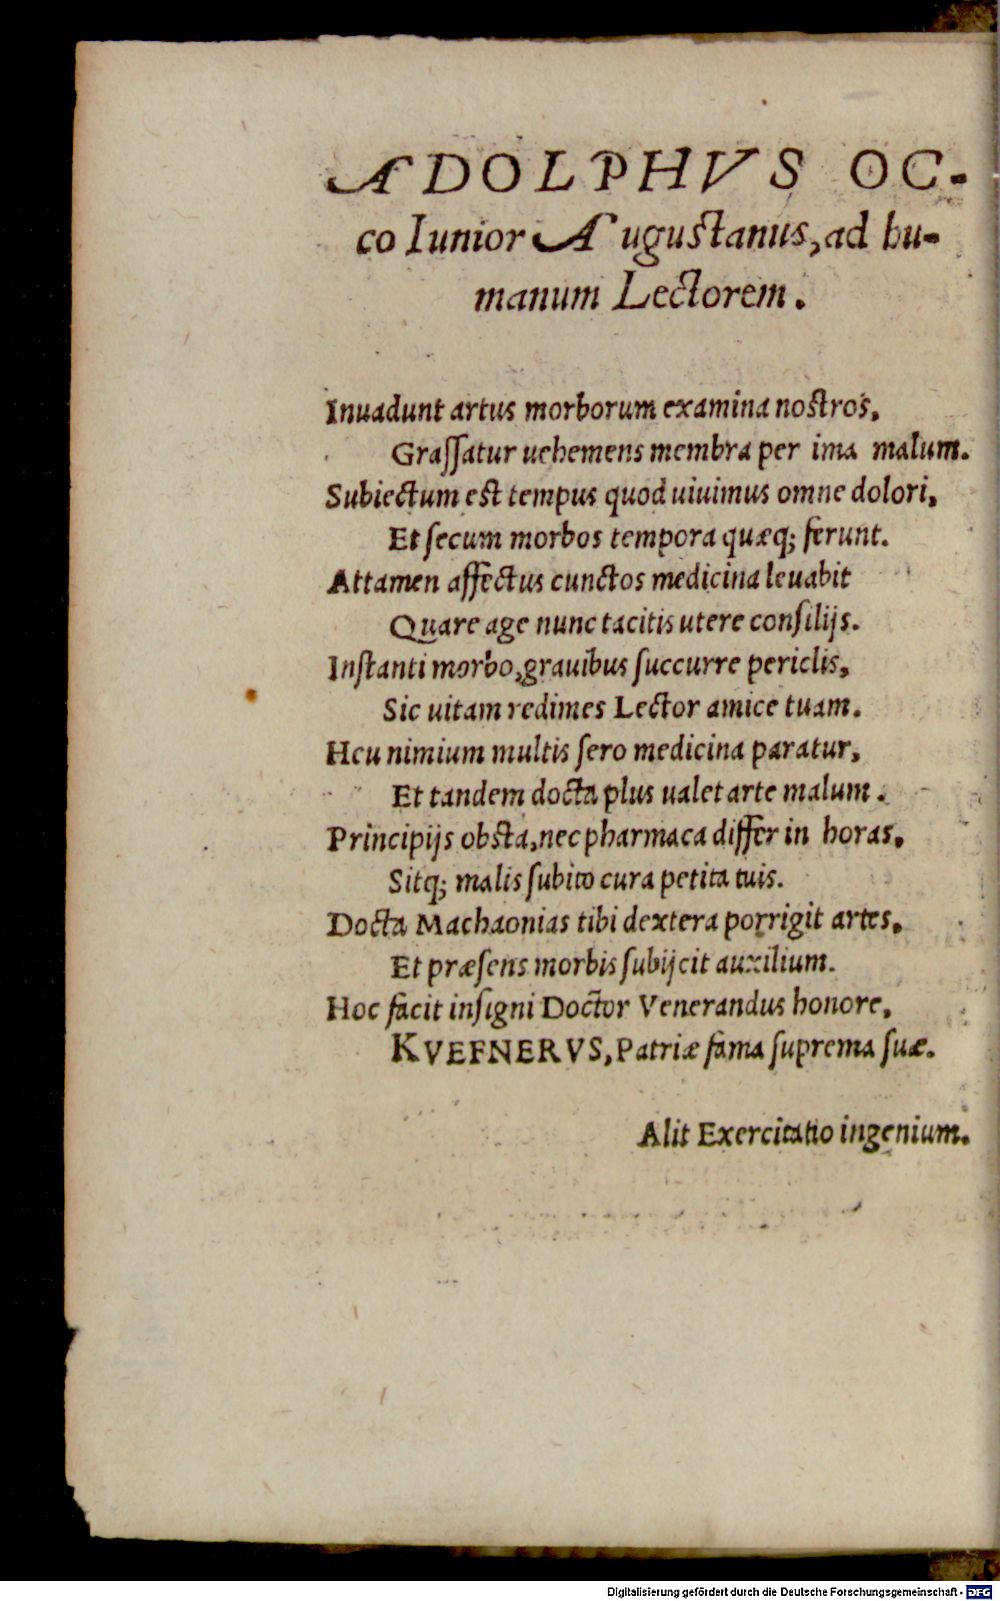 ADOLPHVS OC-
co Iunior Augustanus, ad hu-
manum Lectorem.
Inuadunt artus morborum examina nostros,
Graſſatur uehemens membra per ima malum.
Subiectum est tempus quod uiuimus omne dolori,
Et ſecum morbos tempora quæq; ferunt.
Attamen affectus cunctos medicina leuabit
Quare age nunc tacitis utere conſilijs.
Inſtanti morbo, grauibus ſuccurre periclis,
Sic uitam redimes Lector amice tuam.
Heu nimium multis ſero medicina paratur,
Et tandem docta plus ualet arte malum.
Principijs obsta, nec pharmaca differ in horas,
Sitq; malis ſubito cura petita tuis.
Docta Machaonias tibi dextera porrigit artes,
Et præſens morbis ſubijcit auxilium.
Hoc facit inſigni Doctor Venerandus honore,
KVEFNERVS, Patriæ fama ſuprema ſuæ.
Alit Exercitatio ingenium.
Digitalisierung gefördert durch die Deutsche Forschungsgemeinschaft - DFG